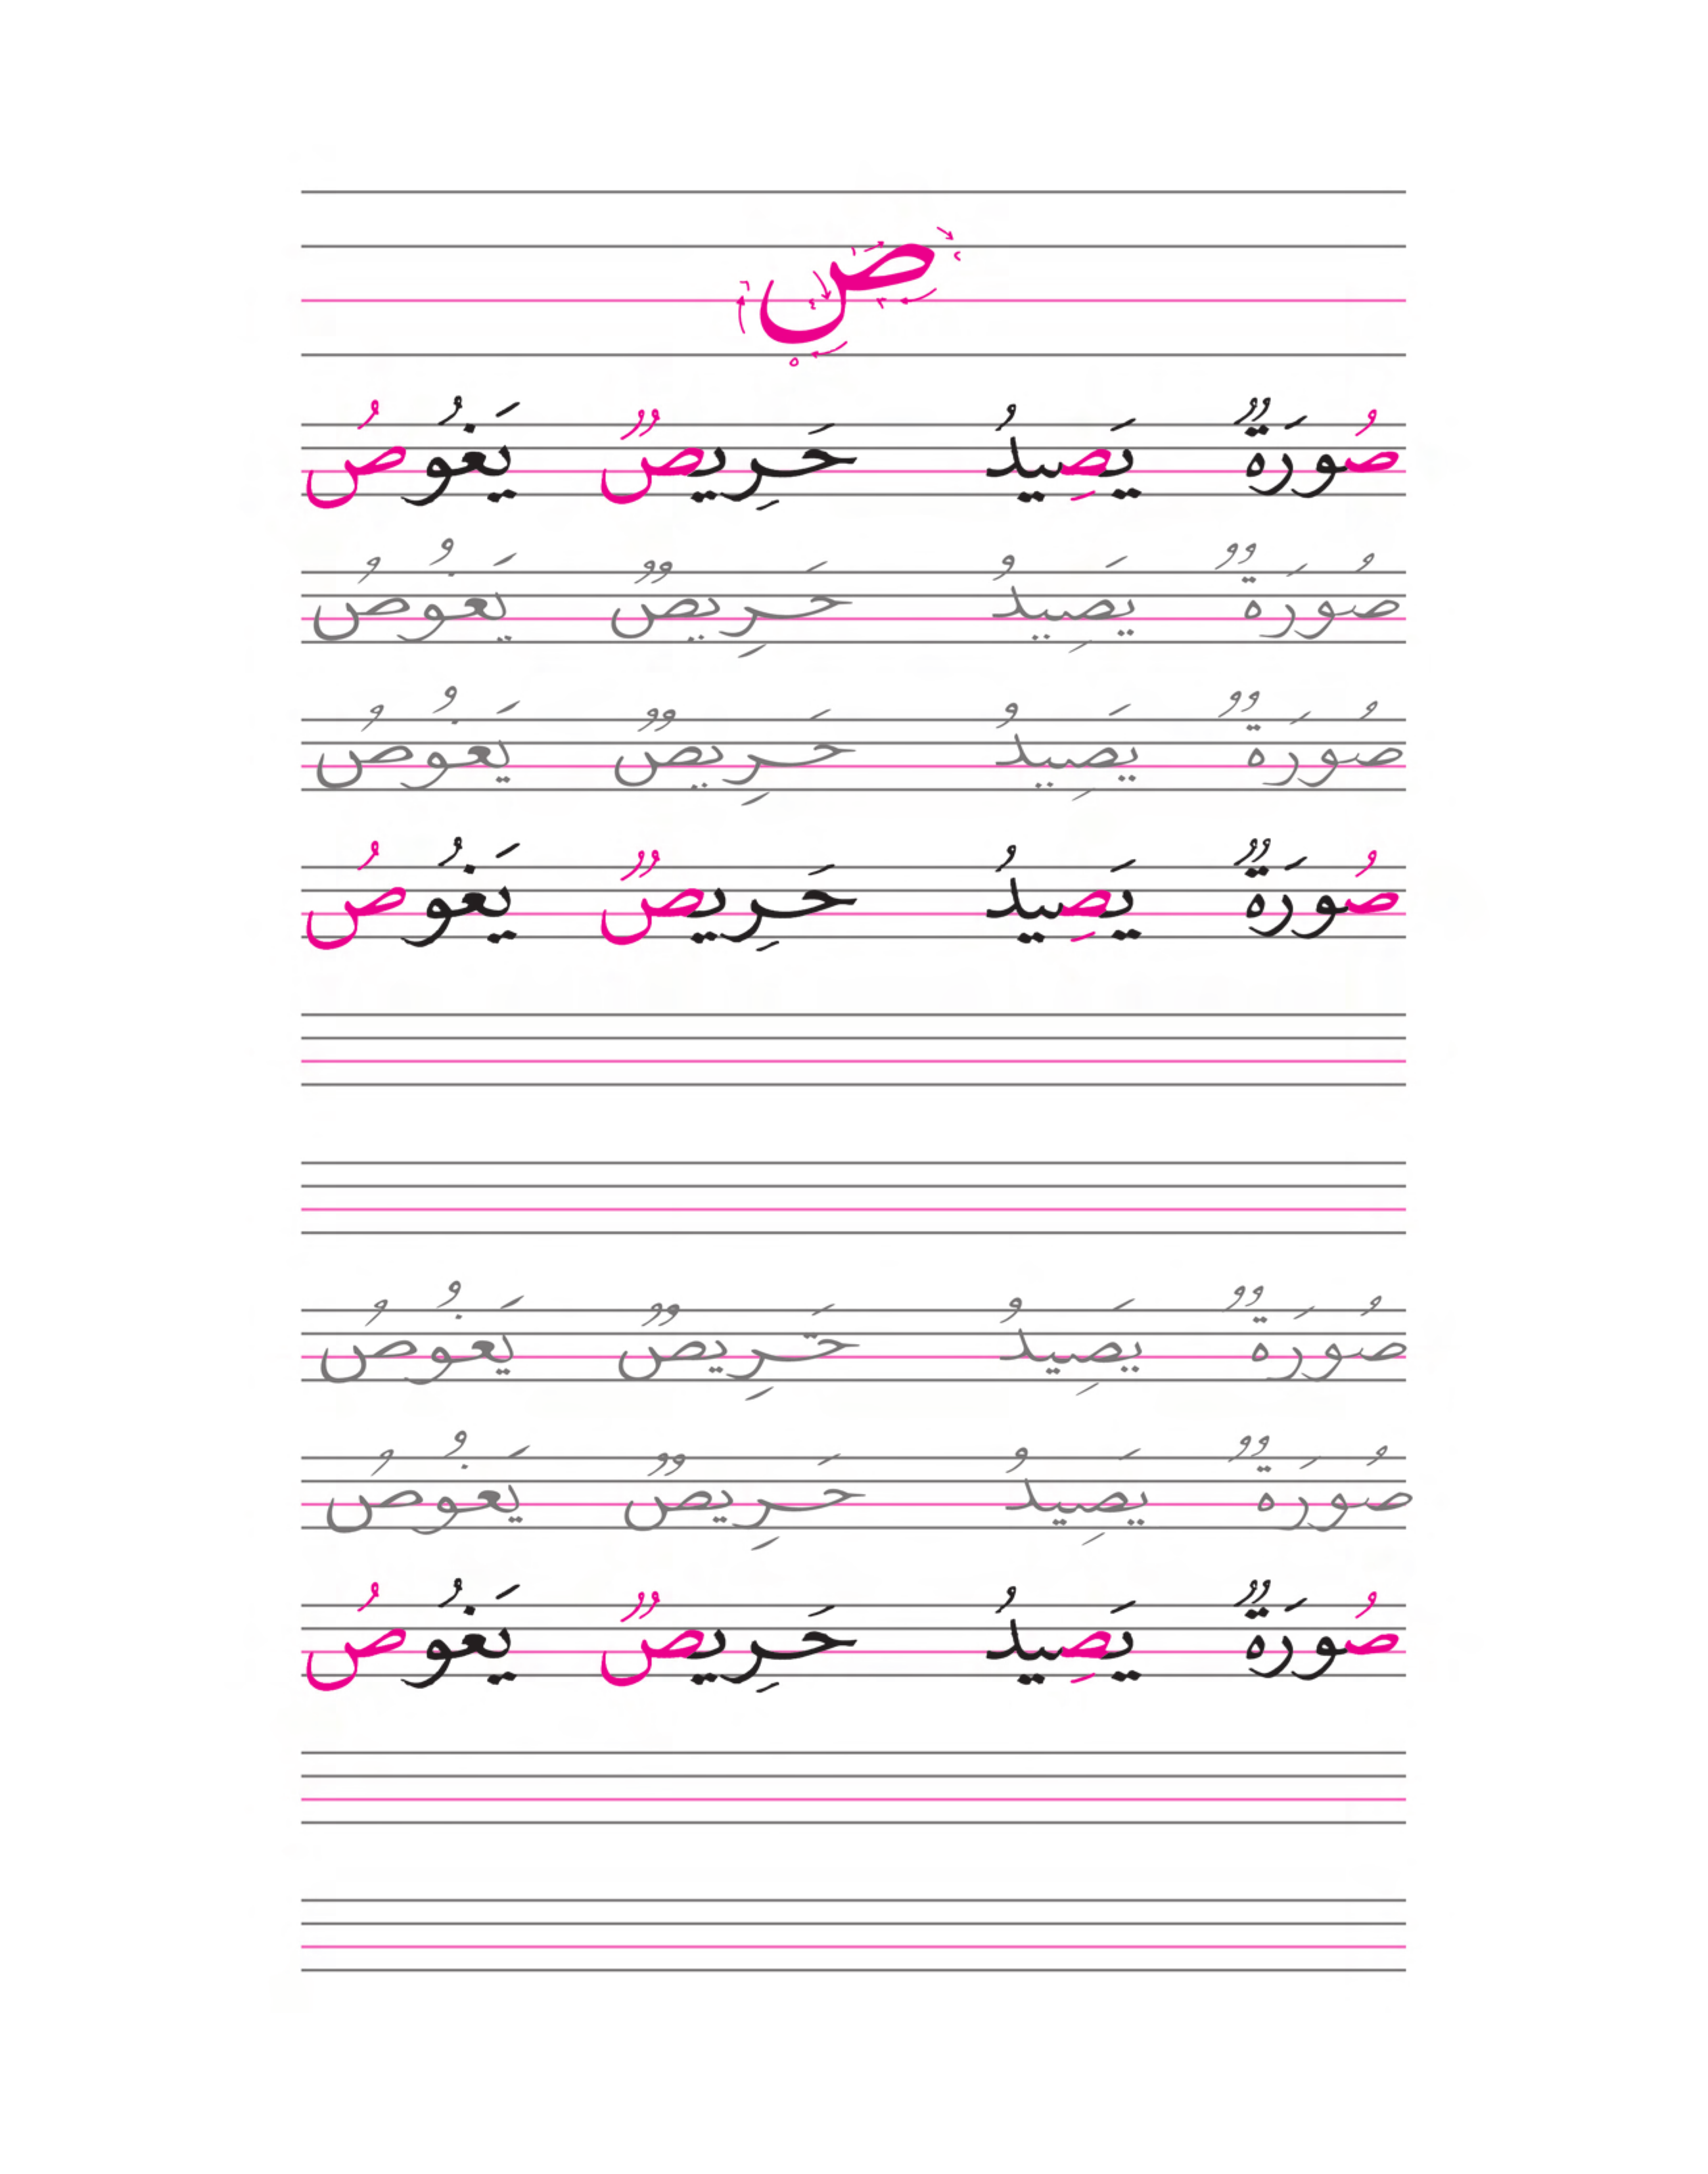 ص
١ ٢ ٣ ٤ ٥ ٦
صُورَةٌ يَصِيدُ حَرِيصٌ يَغُوصُ
صُورَةٌ يَصِيدُ حَرِيصٌ يَغُوصُ
صُورَةٌ يَصِيدُ حَرِيصٌ يَغُوصُ
صُورَةٌ يَصِيدُ حَرِيصٌ يَغُوصُ
صُورَةٌ يَصِيدُ حَرِيصٌ يَغُوصُ
صُورَةٌ يَصِيدُ حَرِيصٌ يَغُوصُ
صُورَةٌ يَصِيدُ حَرِيصٌ يَغُوصُ